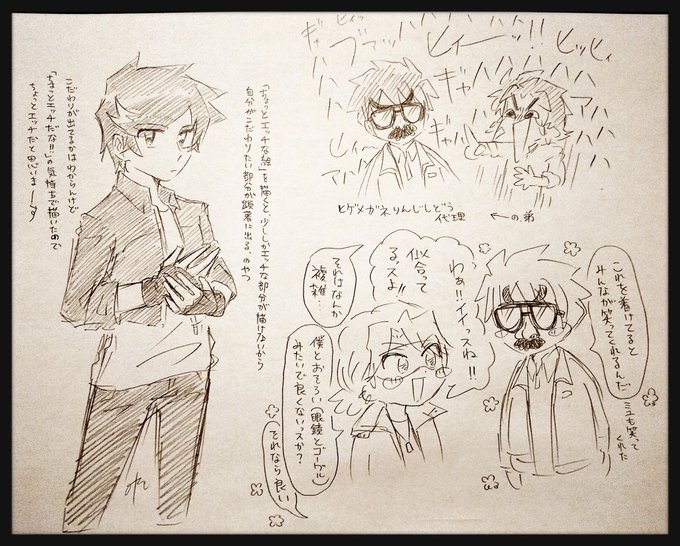 「ちょっとエッチな絵」を描くと、少ししかエッチな部分が描けないから
自分がこだわりたい部分が顕著に出る、のやつ
こだわりが出てるかはわからんけど
「ちょっとエッチだな!!」の気持ちで描いたので
ちょっとエッチだと思いまーーす
ギャハハハハ
ブァッハハハ
ヒィーッ!!
ヒッヒィ
ギャハハハ
ギャハ
アハハ
ヒィー
アハ
ヒゲメガネりんじしどう
代理
←の弟
これを着けてると
みんなが笑ってくれるんだ
ミュも笑って
くれた
わぁ!!イイっスね!!
似合って
るっスよ!!
それはなんか
複雑…
僕とおそろい(眼鏡とゴーグル)
みたいで良くないっスか?
それなら良い